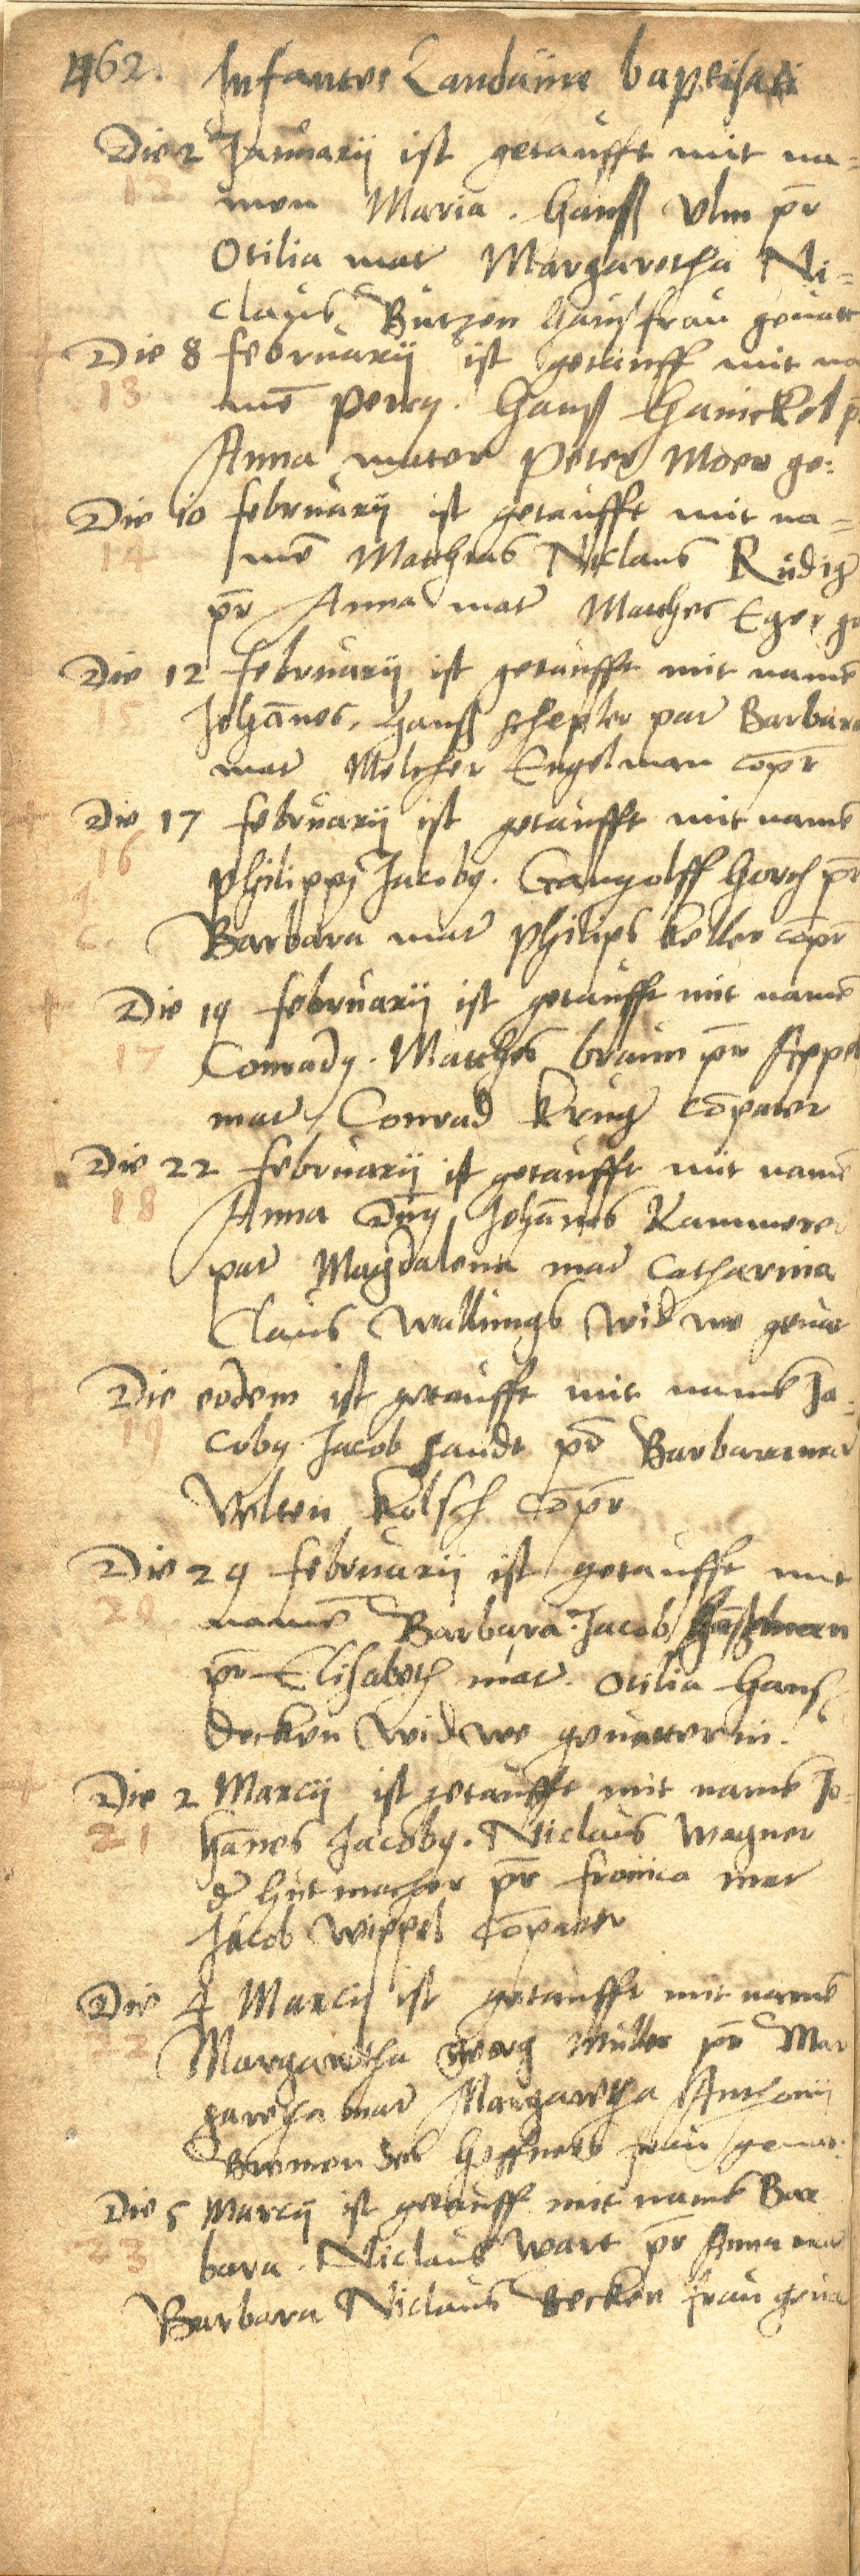 1462. Infantes Landauie baptisati
Die 2 Januarij ist getaufft mit na=
12
men Maria. Hanß Vlm pr̄
Otilia mat Margaretha Ni=
claus Butzen haußfrau geuatt
Die 8 februarij ist getauff mit na
13
mē Petry. Hanß Hanickel p
Anna mater Peter Moer ge:
Die 10 februarij ist getaufft mit na=
14
mē Matthias Niclaus Rüdig
pr̄ Anna mat Matthes Eger ge
Die 12 februarij ist getaufft mit namē
15
Johānes, Hanß schepler pat Barbara
mat Melcher Engelman cōpr
Die 17 februarij ist getaufft mit namē
16
Philippj Jacoby. Gangolff Horch pr̄
Barbara mat Philips Keller cōpr
Die 19 februarij ist getaufft mit namē
17
Conrady. Matthes braun pr̄ Appel
mat Conrad Krug cōpater
Die 22 februarij ist getaufft mit namē
18
Anna Johānes Kammerer
pat Magdalena mat Catharina
Claus Wallungs Widwe geuat
Die eodem ist getaufft mit namē Ja=
19
coby Jacob Handt pr̄ Barbara mat
Velten Kölsch Cōpr
Die 29 februarij ist getaufft mit
20
namē Barbara. Jacob
pr̄ Elisabeth mat. Otilia Hanß
Decken Widwe geuatterin.
Die 2 Marcij ist getaufft mit namē Jo=
21
hānes Jacoby. Niclaus Wagner
d hutmacher pr̄ fronica mat
Jacob Wippel Cōpater
Die 4 Marcij ist getaufft mit namē
22
Margaretha Georg Müller pr̄ Mar
garetha mat Margaretha Anthonij
Bremen des Heffners frau geuat:
Die 5 Marcij ist getauff mit namē Bar
23
bara. Niclaus Wart pr̄ Anna mat
Barbara Niclaus Becken frau geua